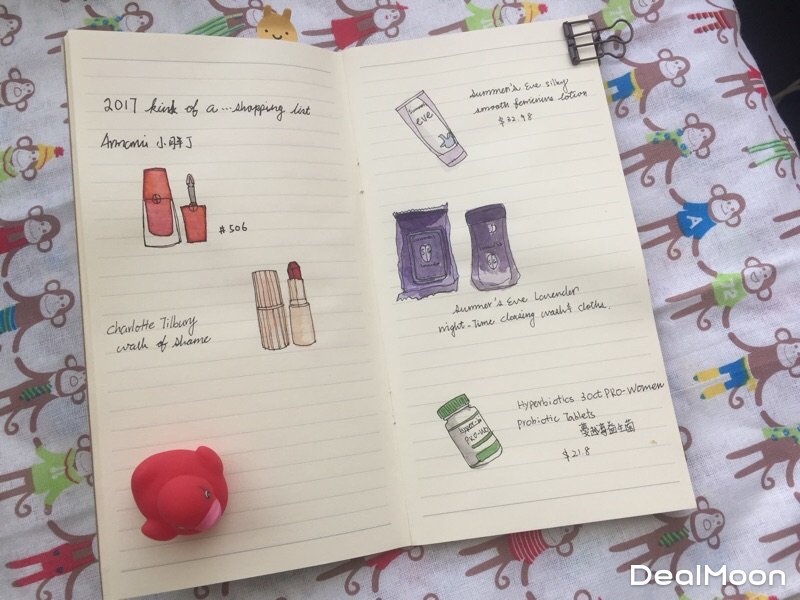 2017 kind of a ... shopping list
Armani 小胖丁
#506
Charlotte Tilbury
walk of shame
Summer's Eve silky
smooth feminine lotion
$32.98
eve
Summer's Eve Lavender
night-time cleasing wash & cloths.
Hyperbiotics 30ct PRO-Women
Probiotic Tablets
蔓越莓益生菌
$21.8
DealMoon